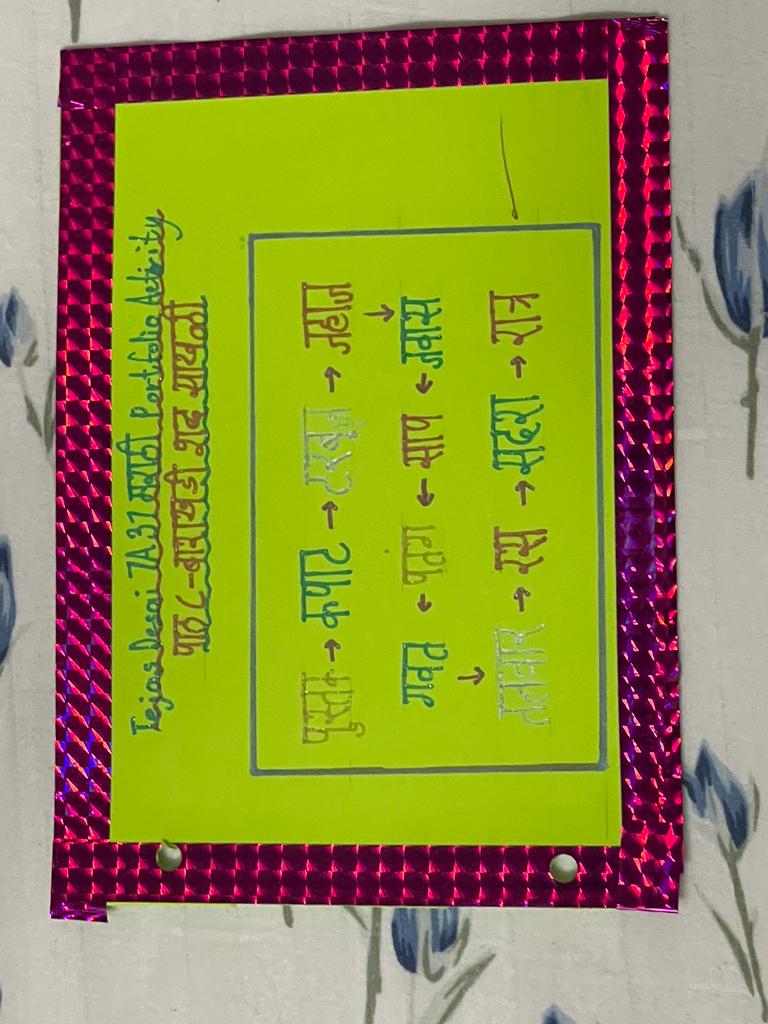 Tejas Desai 7A 37 मराठी Portfolio Activity
पाठ ८-बाराखडी शब्द साखळी
पुस्तक → कपाट → टरबूज → जहाज
↓
गवत ← पतंग ← साप ← जवास
↓
तलवार → रस → सदरा → रात्र